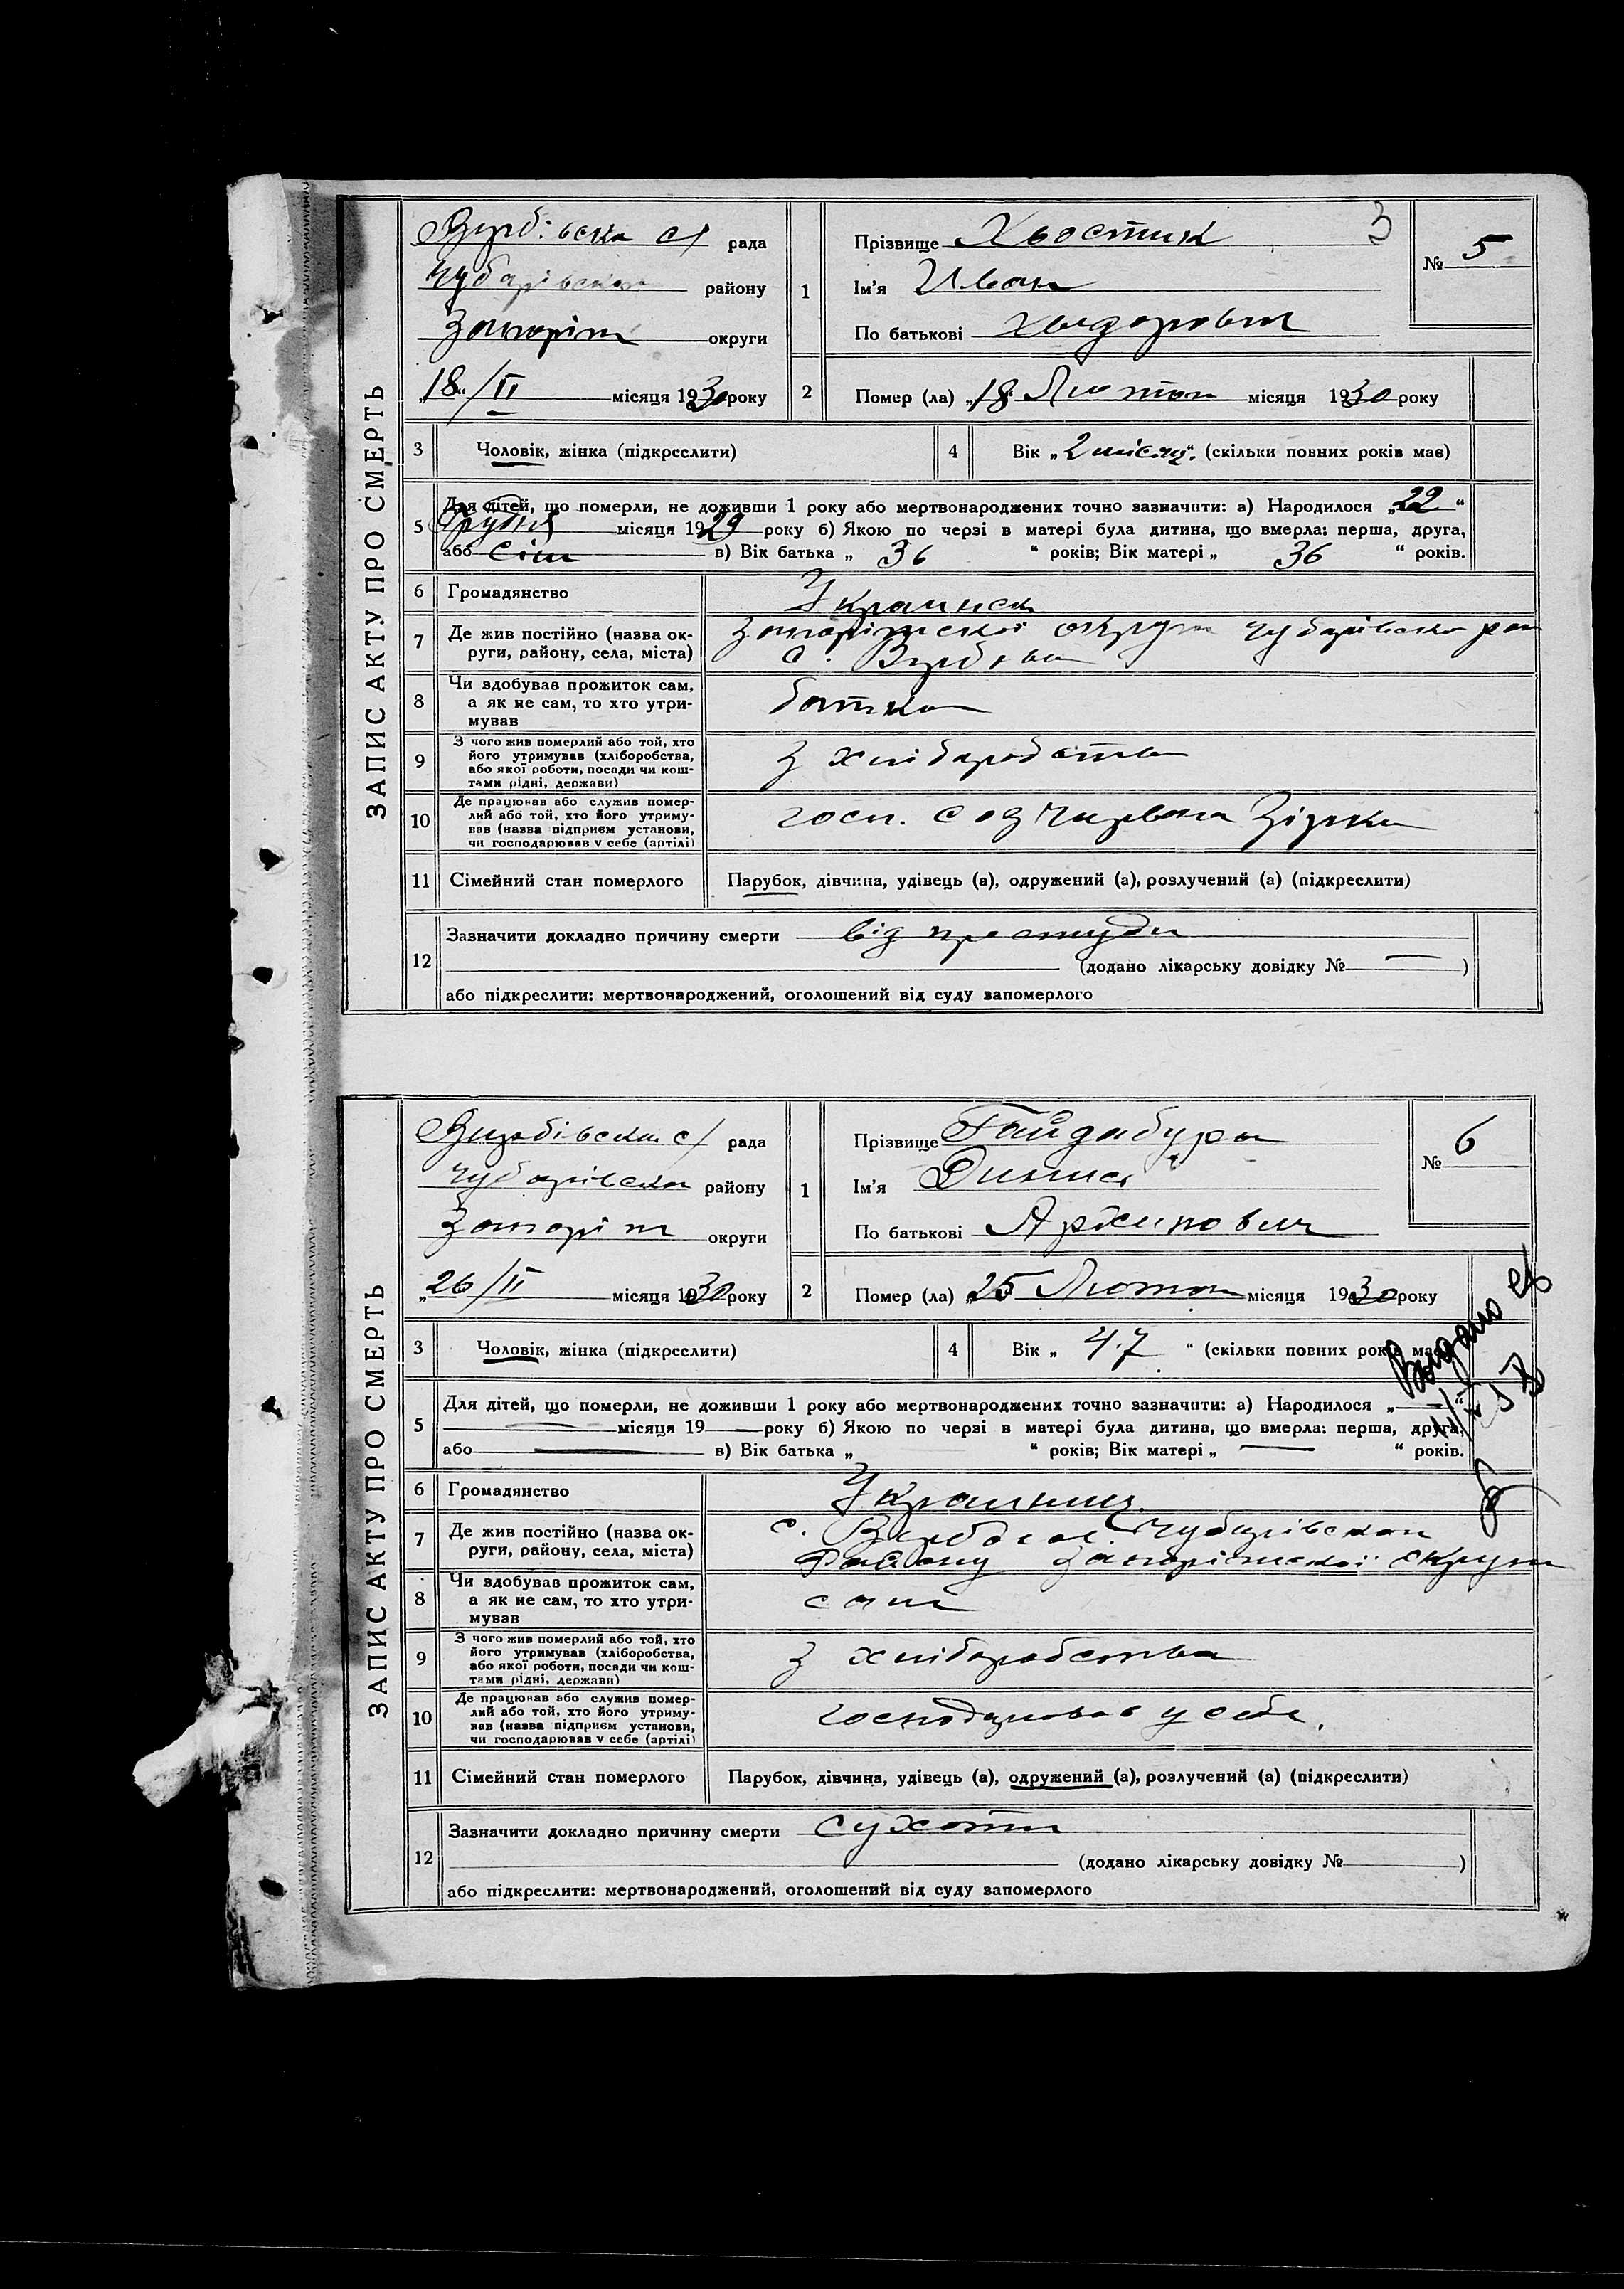 ЗАПИС АКТУ ПРО СМЕРТЬ
Вербівська с/ рада
Чубарівська району
Запоріж округи
„18“/II місяця 1930 року
1 Прізвище Хвостик
Ім'я Иван
По батькові
3
№ 5
2 Помер (ла) „18 Лютого місяця 1930 року
3 Чоловік, жінка (підкреслити)
4 Вік „2 місяц“. (скільки повних років має)
5 Для дітей, що померли, не доживши 1 року або мертвонароджених точно зазначити: а) Народилося „22“
Грудня місяця 1929 року б) Якою по черзі в матері була дитина, що вмерла: перша, друга,
або сім в) Вік батька „ 36 “ років; Вік матері „ 36 “ років.
6 Громадянство Украинск
7 Де жив постійно (назва округи, району, села, міста) Запоріжської округи Чубарівсько рай
с. Вербова
8 Чи здобував прожиток сам,
а як не сам, то хто утри-
мував батько
9 З чого жив померлий або той, хто
його утримував (хліборобства,
або якої роботи, посади чи кош-
тами рідні, держави) з хліборобства
10 Де працював або служив помер-
лий або той, хто його утриму-
вав (назва підприєм установи,
чи господарював у себе (артілі) госп. соз Червона Зірка
11 Сімейний стан померлого Парубок, дівчина, удівець (а), одружений (а), розлучений (а) (підкреслити)
12 Зазначити докладно причину смерти від простуди
(додано лікарську довідку № — )
або підкреслити: мертвонароджений, оголошений від суду запомерлого
ЗАПИС АКТУ ПРО СМЕРТЬ
Вербівська с/ рада
Чубарівська району
Запоріж округи
„26/II місяця 1930 року
1 Прізвище Гайдабура
Ім'я Динис
По батькові Архипович
№ 6
2 Помер (ла) „25 Лютого місяця 1930 року
3 Чоловік, жінка (підкреслити)
4 Вік „ 47 “ (скільки повних років має)
Видано
5 Для дітей, що померли, не доживши 1 року або мертвонароджених точно зазначити: а) Народилося „ — “
— місяця 19 — року б) Якою по черзі в матері була дитина, що вмерла: перша, друга,
або — в) Вік батька „ “ років; Вік матері „ — “ років.
6 Громадянство Украинец
7 Де жив постійно (назва округи, району, села, міста) с. Вербова Чубарівскаи
Району Запоріжської округи
8 Чи здобував прожиток сам,
а як не сам, то хто утри-
мував сам
9 З чого жив померлий або той, хто
його утримував (хліборобства,
або якої роботи, посади чи кош-
тами рідні, держави) з хліборобства
10 Де працював або служив помер-
лий або той, хто його утриму-
вав (назва підприєм установи,
чи господарював у себе (артілі) господарював у себе.
11 Сімейний стан померлого Парубок, дівчина, удівець (а), одружений (а), розлучений (а) (підкреслити)
12 Зазначити докладно причину смерти сухоти
(додано лікарську довідку № )
або підкреслити: мертвонароджений, оголошений від суду запомерлого